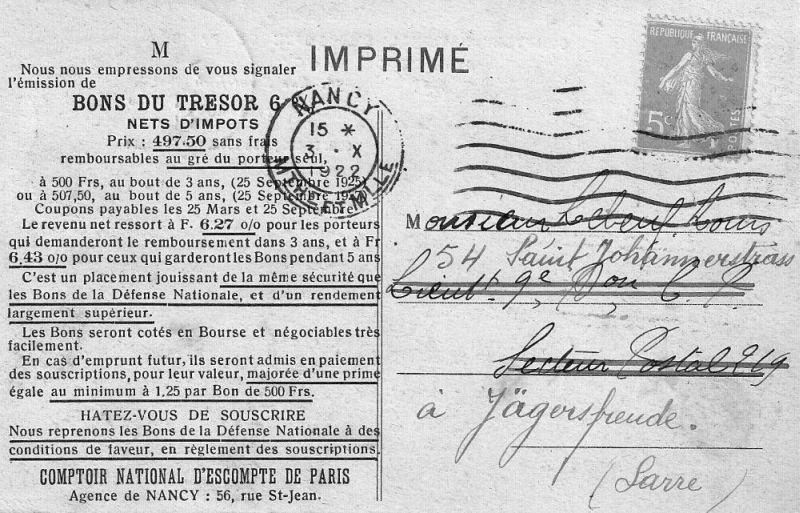 M
Nous nous empressons de vous signaler
l'émission de
BONS DU TRESOR 6
NETS D'IMPOTS
Prix : 497.50 sans frais
remboursables au gré du porteur seul,
à 500 Frs, au bout de 3 ans, (25 Septembre 1925)
ou à 507,50, au bout de 5 ans, (25 Septembre
Coupons payables les 25 Mars et 25 Septembre
Le revenu net ressort à F. 6.27 o/o pour les porteurs
qui demanderont le remboursement dans 3 ans, et à Fr
6,43 o/o pour ceux qui garderont les Bons pendant 5 ans
C'est un placement jouissant de la même sécurité que
les Bons de la Défense Nationale, et d'un rendement
largement supérieur.
Les Bons seront cotés en Bourse et négociables très
facilement.
En cas d'emprunt futur, ils seront admis en paiement
des souscriptions, pour leur valeur, majorée d'une prime
égale au minimum à 1.25 par Bon de 500 Frs.
HATEZ-VOUS DE SOUSCRIRE
Nous reprenons les Bons de la Défense Nationale à des
conditions de faveur, en règlement des souscriptions.
COMPTOIR NATIONAL D'ESCOMPTE DE PARIS
Agence de NANCY : 56, rue St-Jean.
IMPRIMÉ
NANCY
15 *
3 . X
1922
MTHE ET MLLE
REPUBLIQUE FRANÇAISE
5c
POSTES
Monsieur Lebeuf Louis
54 Saint Johannerstrass
Lieut 9e Don C. P.
Secteur Postal 219
à Jägersfreude.
(Sarre)